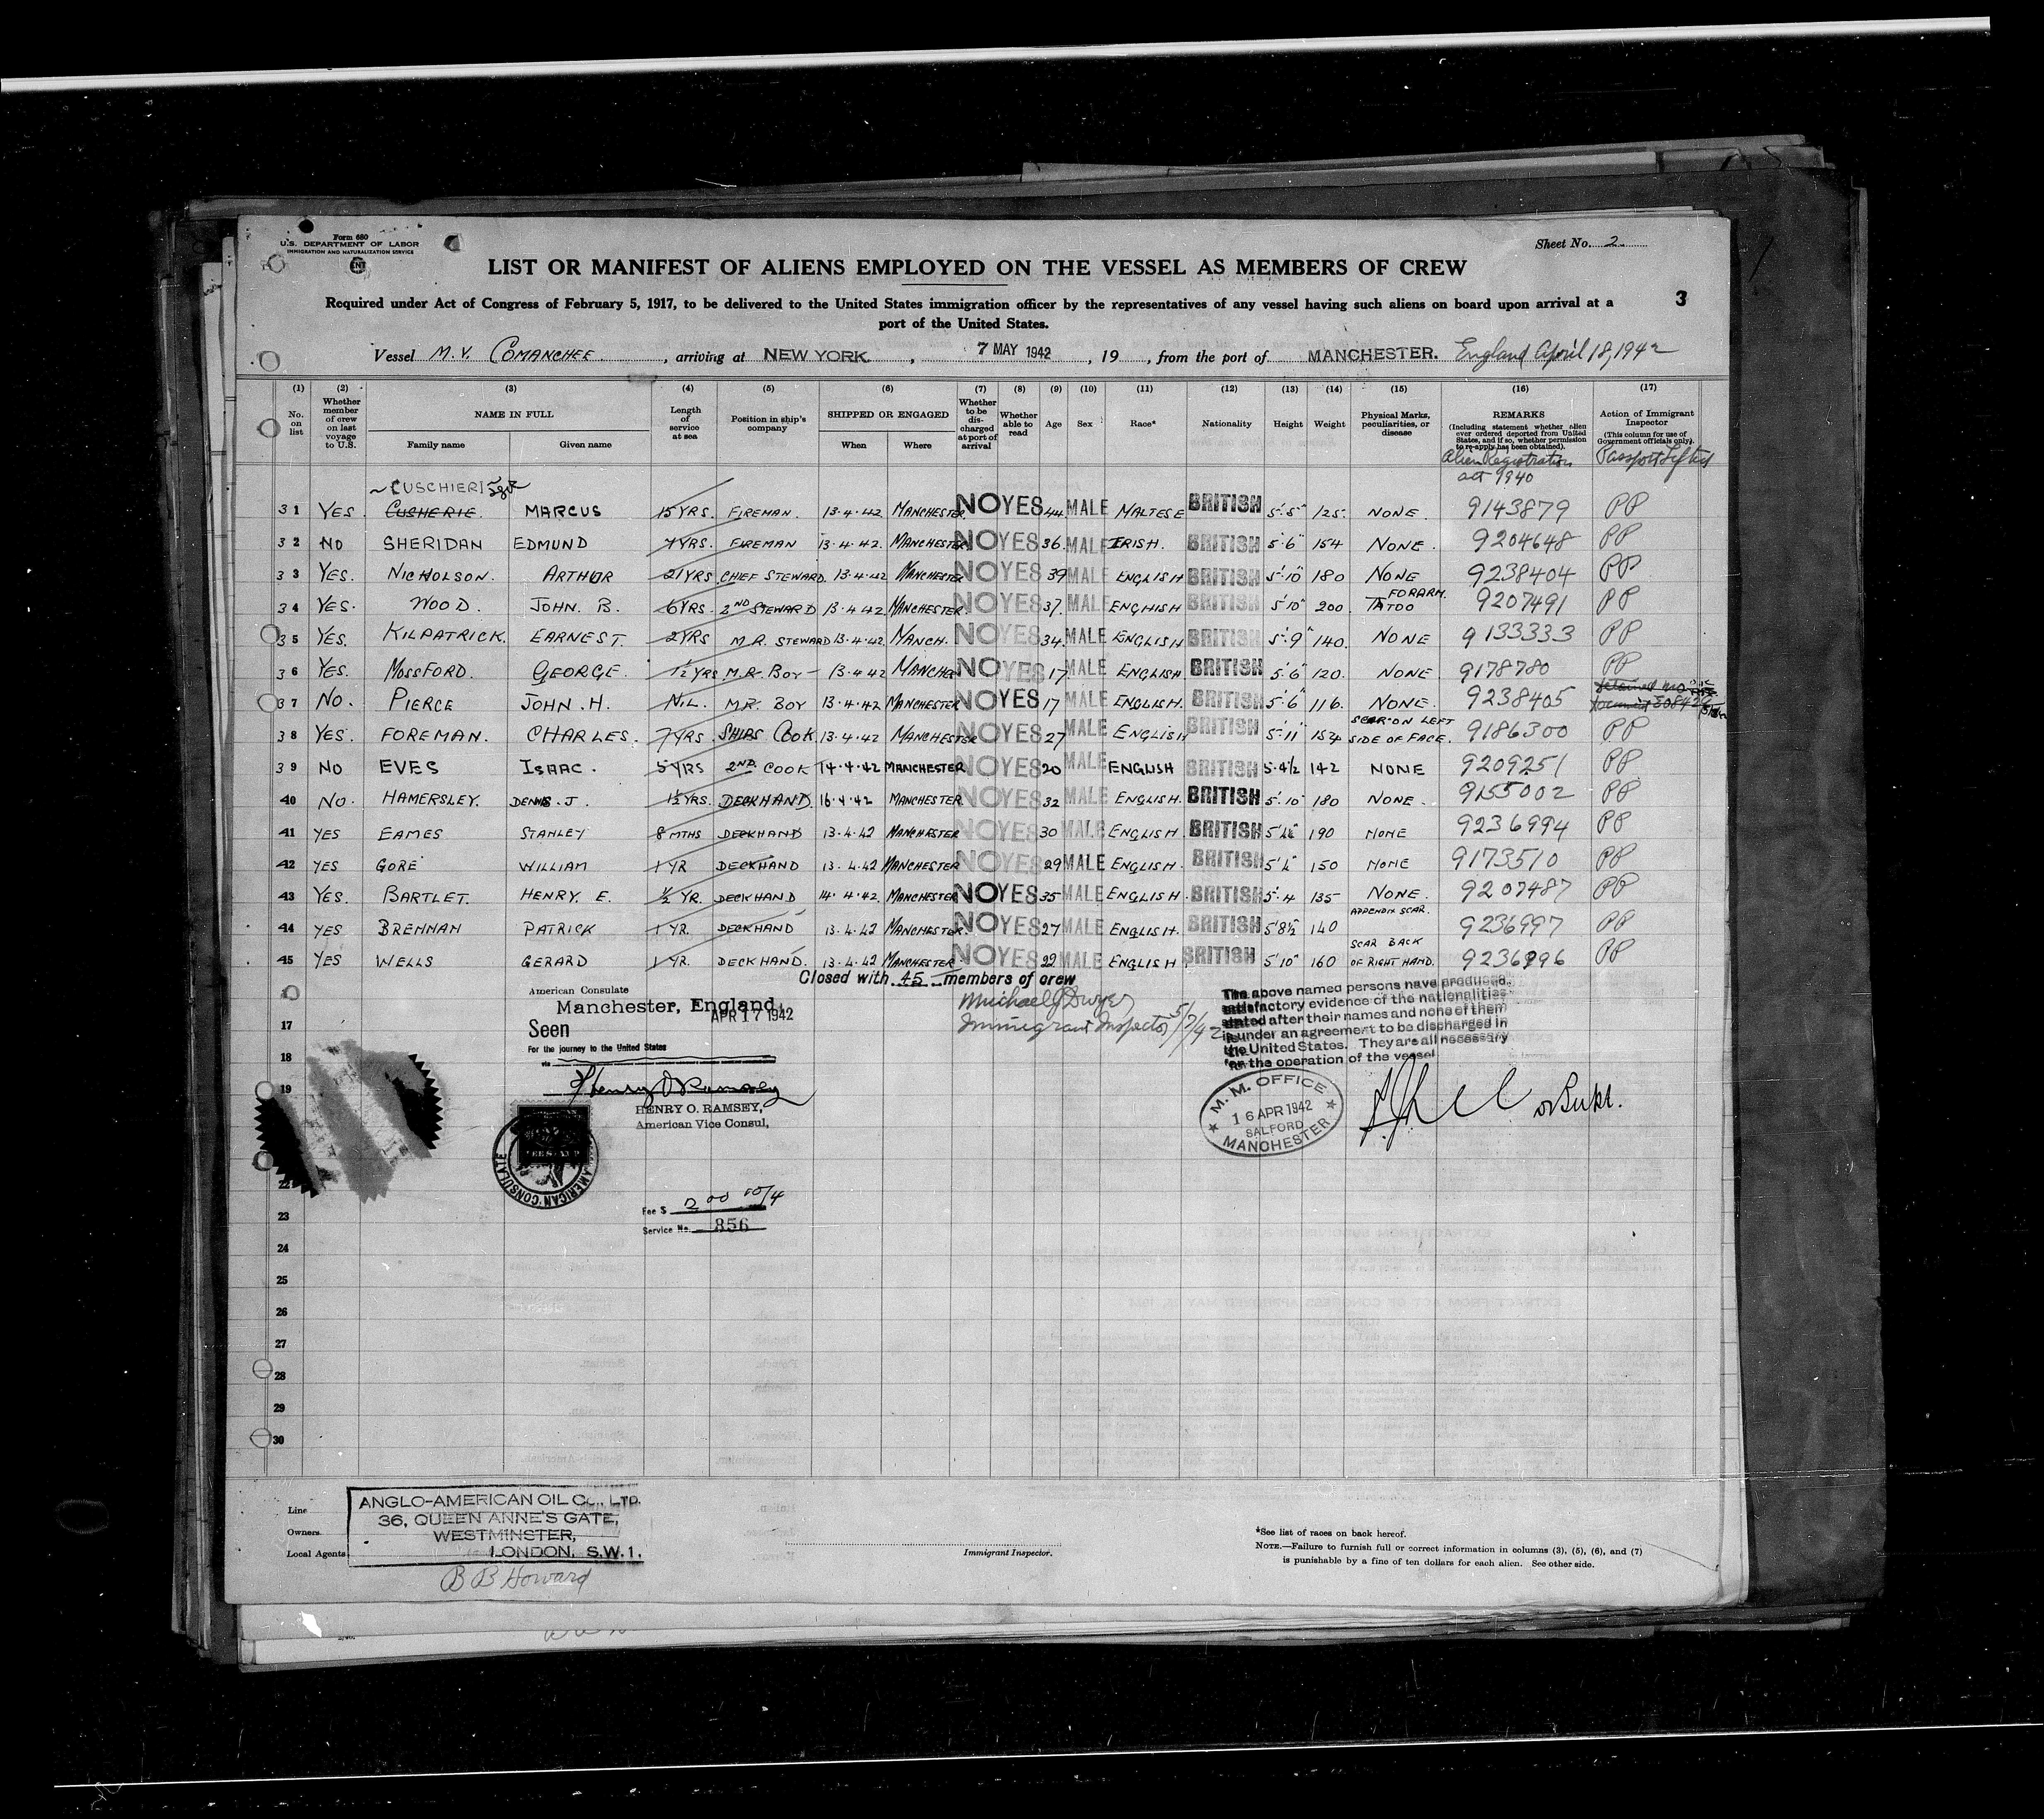 Form 680
U.S. DEPARTMENT OF LABOR
IMMIGRATION AND NATURALIZATION SERVICE
Sheet No. 2
LIST OR MANIFEST OF ALIENS EMPLOYED ON THE VESSEL AS MEMBERS OF CREW
Required under Act of Congress of February 5, 1917, to be delivered to the United States immigration officer by the representatives of any vessel having such aliens on board upon arrival at a
port of the United States.
3
Vessel M.V. COMANCHEE, arriving at NEW YORK, 7 MAY 1942, 19, from the port of MANCHESTER. England April 18, 1942
(1) (2) (3) (4) (5) (6) (7) (8) (9) (10) (11) (12) (13) (14) (15) (16) (17)
No. on list
Whether member of crew on last voyage to U.S.
NAME IN FULL
Family name Given name
Length of service at sea
Position in ship's company
SHIPPED OR ENGAGED
When Where
Whether to be discharged at port of arrival
Whether able to read
Age
Sex
Race*
Nationality
Height
Weight
Physical Marks, peculiarities, or disease
REMARKS
(Including statement whether alien ever ordered deported from United States, and if so, whether permission to re-apply has been obtained).
Alien Registration
act 1940
Action of Immigrant Inspector
(This column for use of Government officials only).
Passport Lifted
CUSCHIERI
31 YES. CUSHERIE. MARCUS 15 YRS. FIREMAN. 13.4.42 MANCHESTER. NO YES 44 MALE MALTESE BRITISH 5'.5" 125. NONE. 9143879 PP
32 NO SHERIDAN EDMUND 7 YRS. FIREMAN 13.4.42. MANCHESTER NO YES 36. MALE IRISH. BRITISH 5'6" 154 NONE. 9204648 PP
33 YES. NICHOLSON. ARTHUR 21 YRS. CHIEF STEWARD. 13.4.42 MANCHESTER NO YES 39 MALE ENGLISH BRITISH 5'.10" 180 NONE 9238404 PP
34 YES. WOOD. JOHN. B. 6 YRS. 2ND STEWARD 13.4.42. MANCHESTER. NO YES 37. MALE ENGHISH BRITISH 5'10" 200. FORARM. TATOO 9207491 PP
35 YES. KILPATRICK. EARNEST. 2 YRS M.R. STEWARD 13.4.42. MANCH. NO YES 34. MALE ENGLISH BRITISH 5'.9" 140. NONE 9133333 PP
36 YES. MOSSFORD. GEORGE. 1½ YRS M.R. BOY 13.4.42 MANCHR NO YES 17 MALE ENGLISH BRITISH 5.6" 120. NONE 9178780 PP
37 NO. PIERCE JOHN.H. NIL. M.R. BOY 13.4.42 MANCHESTER NO YES 17 MALE ENGLISH. BRITISH 5'.6" 116. NONE. 9238405
38 YES. FOREMAN. CHARLES. 7 YRS SHIPS COOK. 13.4.42 MANCHESTER NO YES 27 MALE ENGLISH BRITISH 5'-11" 154 SCAR ON LEFT SIDE OF FACE. 9186300 PP
39 NO EVES ISAAC. 5 YRS 2ND COOK 14.4.42 MANCHESTER NO YES 20 MALE ENGLISH BRITISH 5.4½ 142 NONE 9209251 PP
40 NO. HAMERSLEY. DENNIS.J. 1½ YRS. DECKHAND 16.4.42 MANCHESTER NO YES 32 MALE ENGLISH. BRITISH 5'.10" 180 NONE. 9155002 PP
41 YES EAMES STANLEY 8 MTHS DECKHAND 13.4.42 MANCHESTER NO YES 30 MALE ENGLISH. BRITISH 190 NONE 9236994 PP
42 YES GORE WILLIAM 1 YR DECKHAND 13.4.42 MANCHESTER NO YES 29 MALE ENGLISH. BRITISH 150 NONE 9173510 PP
43 YES. BARTLET. HENRY. E. ½ YR. DECKHAND 14.4.42. MANCHESTER NO YES 35 MALE ENGLISH. BRITISH 5'.4 135 NONE. 9207487 PP
44 YES BRENNAN PATRICK 1 YR. DECKHAND 13.4.42 MANCHESTER. NO YES 27 MALE ENGLISH. BRITISH 5'8½" 140 APPENDIX SCAR. 9236997 PP
45 YES WELLS GERARD 1 YR. DECKHAND. 13.4.42 MANCHESTER NO YES 22 MALE ENGLISH. BRITISH 5'10" 160 SCAR BACK OF RIGHT HAND. 9236996 PP
Closed with 45 members of crew
Michael J Dwyer
Immigrant Inspector 5/7/42
American Consulate
Manchester, England
APR 17 1942
Seen
For the journey to the United States
via
Henry O Ramsey
HENRY O. RAMSEY,
American Vice Consul,
AMERICAN CONSULATE
Fee $ 2.00
Service No. 856
The above named persons have produced
satisfactory evidence of the nationalities
stated after their names and none of them
is under an agreement to be discharged in
the United States. They are all necessary
for the operation of the vessel
M. M. OFFICE
16 APR 1942
SALFORD
MANCHESTER
17
18
19
22
23
24
25
26
27
28
29
30
Line
Owners
Local Agents
ANGLO-AMERICAN OIL CO., LTD.
36, QUEEN ANNE'S GATE,
WESTMINSTER,
LONDON. S.W.1.
B B Howard
Immigrant Inspector.
*See list of races on back hereof.
NOTE.—Failure to furnish full or correct information in columns (3), (5), (6), and (7)
is punishable by a fine of ten dollars for each alien. See other side.